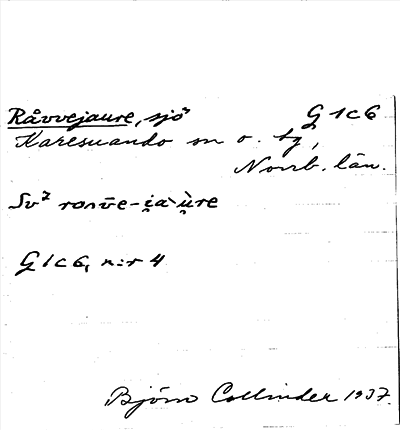 Råvvejaure, sjö G 1c6
Karesuando sn o. tg,
Norrb. län.
G1c6, n:r 4
Björn Collinder 1937.